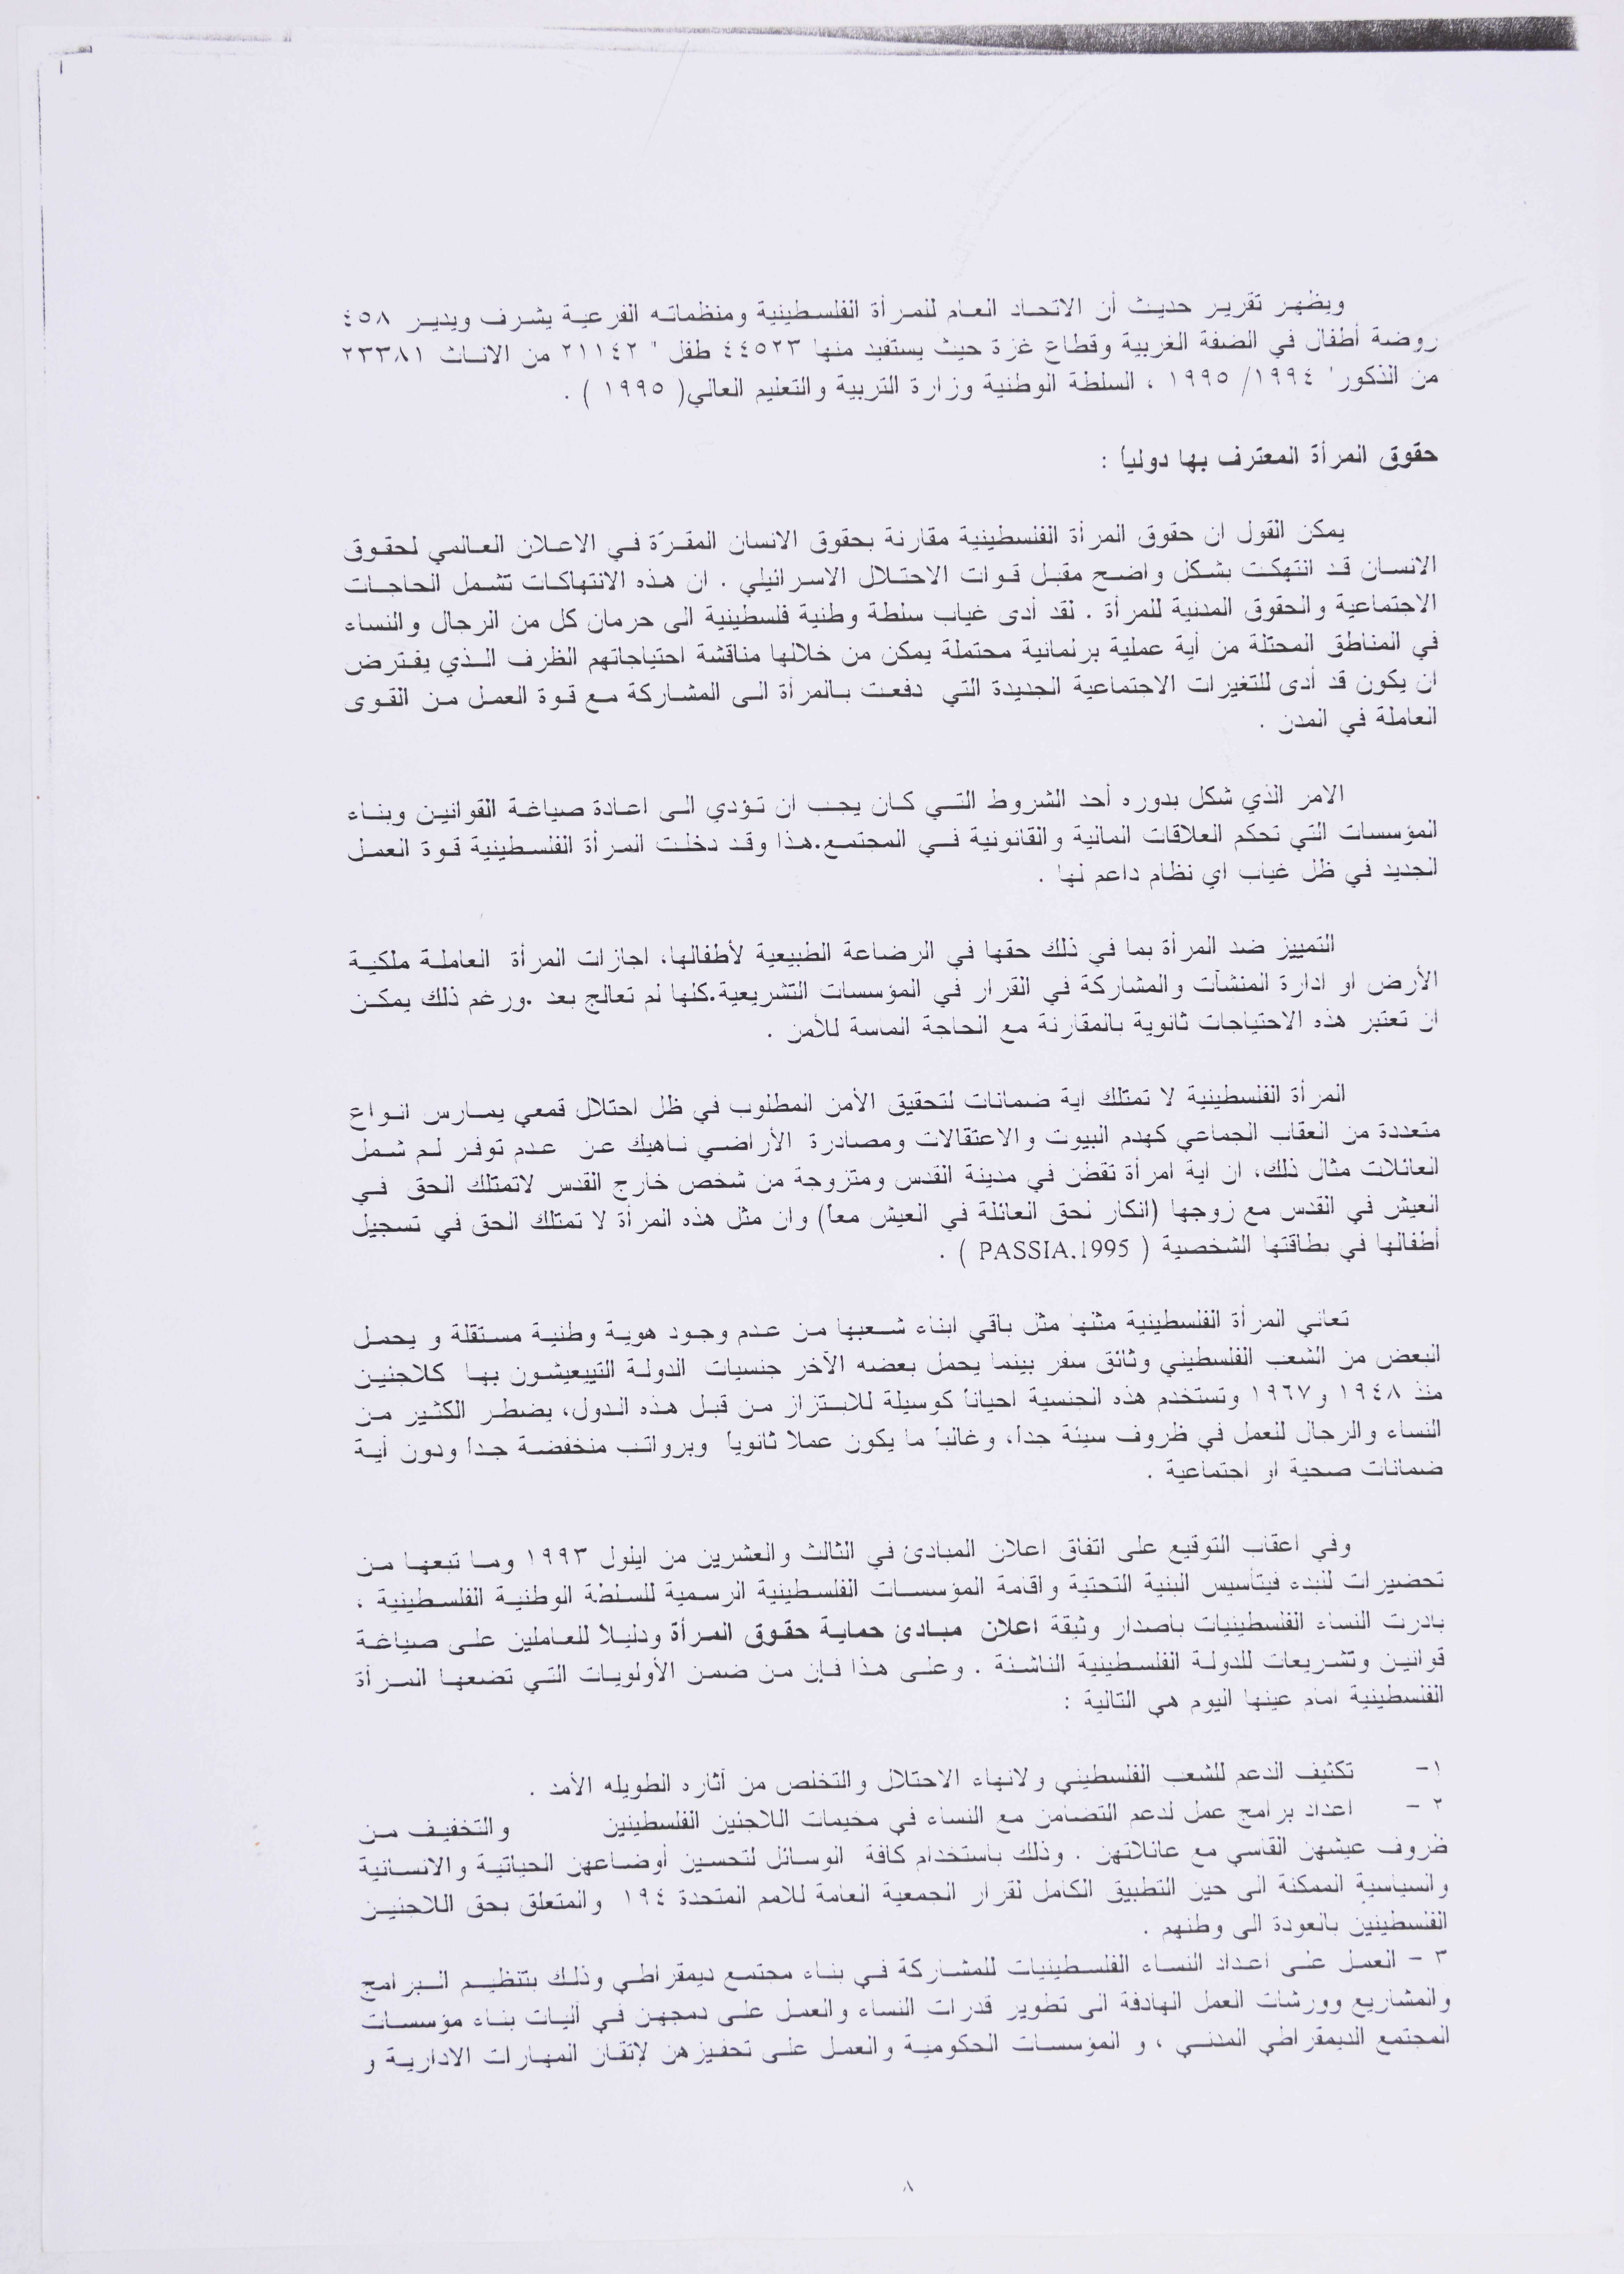 ويظهر تقرير حديث أن الاتحاد العام للمرأة الفلسطينية ومنظماته الفرعية يشرف ويدير ٤٥٨
روضة أطفال في الضفة الغربية وقطاع غزة حيث يستفيد منها ٤٤٥٢٣ طفل " ٢١١٤٢ من الاناث ٢٣٣٨١
من الذكور" ١٩٩٤/ ١٩٩٥ ، السلطة الوطنية وزارة التربية والتعليم العالي( ١٩٩٥ ) .
حقوق المرأة المعترف بها دوليا :
يمكن القول ان حقوق المرأة الفلسطينية مقارنة بحقوق الانسان المقرّة في الاعلان العالمي لحقوق
الانسان قد انتهكت بشكل واضح مقبل قوات الاحتلال الاسرائيلي . ان هذه الانتهاكات تشمل الحاجات
الاجتماعية والحقوق المدنية للمرأة . لقد أدى غياب سلطة وطنية فلسطينية الى حرمان كل من الرجال والنساء
في المناطق المحتلة من أية عملية برلمانية محتملة يمكن من خلالها مناقشة احتياجاتهم الظرف الذي يفترض
ان يكون قد أدى للتغيرات الاجتماعية الجديدة التي دفعت بالمرأة الى المشاركة مع قوة العمل من القوى
العاملة في المدن .
الامر الذي شكل بدوره أحد الشروط التي كان يجب ان تؤدي الى اعادة صياغة القوانين وبناء
المؤسسات التي تحكم العلاقات المالية والقانونية في المجتمع.هذا وقد دخلت المرأة الفلسطينية قوة العمل
الجديد في ظل غياب اي نظام داعم لها .
التمييز ضد المرأة بما في ذلك حقها في الرضاعة الطبيعية لأطفالها، اجازات المرأة العاملة ملكية
الأرض او ادارة المنشآت والمشاركة في القرار في المؤسسات التشريعية.كلها لم تعالج بعد .ورغم ذلك يمكن
ان تعتبر هذه الاحتياجات ثانوية بالمقارنة مع الحاجة الماسة للأمن .
المرأة الفلسطينية لا تمتلك اية ضمانات لتحقيق الأمن المطلوب في ظل احتلال قمعي يمارس انواع
متعددة من العقاب الجماعي كهدم البيوت والاعتقالات ومصادرة الأراضي ناهيك عن عدم توفر لم شمل
العائلات مثال ذلك، ان اية امرأة تقطن في مدينة القدس ومتزوجة من شخص خارج القدس لاتمتلك الحق في
العيش في القدس مع زوجها (انكار لحق العائلة في العيش معا) وان مثل هذه المرأة لا تمتلك الحق في تسجيل
أطفالها في بطاقتها الشخصية ( PASSIA.1995 ) .
تعاني المرأة الفلسطينية مثلها مثل باقي ابناء شعبها من عدم وجود هوية وطنية مستقلة و يحمل
البعض من الشعب الفلسطيني وثائق سفر بينما يحمل بعضه الآخر جنسيات الدولة التييعيشون بها كلاجئين
منذ ١٩٤٨ و١٩٦٧ وتستخدم هذه الجنسية احياناً كوسيلة للابتزاز من قبل هذه الدول، يضطر الكثير من
النساء والرجال للعمل في ظروف سيئة جدا، وغالبا ما يكون عملا ثانويا وبرواتب منخفضة جدا ودون أية
ضمانات صحية او اجتماعية .
وفي اعقاب التوقيع على اتفاق اعلان المبادئ في الثالث والعشرين من ايلول ١٩٩٣ وما تبعها من
تحضيرات للبدء فيتأسيس البنية التحتية واقامة المؤسسات الفلسطينية الرسمية للسلطة الوطنية الفلسطينية ،
بادرت النساء الفلسطينيات باصدار وثيقة اعلان مبادئ حماية حقوق المرأة ودليلا للعاملين على صياغة
قوانين وتشريعات للدولة الفلسطينية الناشئة . وعلى هذا فإن من ضمن الأولويات التي تضعها المرأة
الفلسطينية امام عينها اليوم هي التالية :
١- تكثيف الدعم للشعب الفلسطيني ولانهاء الاحتلال والتخلص من آثاره الطويله الأمد .
٢ - اعداد برامج عمل لدعم التضامن مع النساء في مخيمات اللاجئين الفلسطينين والتخفيف من
ظروف عيشهن القاسي مع عائلاتهن . وذلك باستخدام كافة الوسائل لتحسين أوضاعهن الحياتية والانسانية
والسياسية الممكنة الى حين التطبيق الكامل لقرار الجمعية العامة للامم المتحدة ١٩٤ والمتعلق بحق اللاجئين
الفلسطينين بالعودة الى وطنهم .
٣ - العمل على اعداد النساء الفلسطينيات للمشاركة في بناء مجتمع ديمقراطي وذلك بتنظيم البرامج
والمشاريع وورشات العمل الهادفة الى تطوير قدرات النساء والعمل على دمجهن في آليات بناء مؤسسات
المجتمع الديمقراطي المدني ، و المؤسسات الحكومية والعمل على تحفيزهن لإتقان المهارات الادارية و
٨